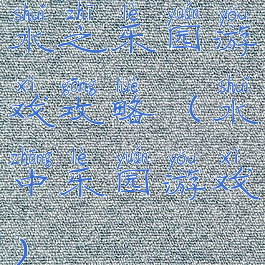 shuǐ zhī lè yuán yóu
水之乐园游
xì gōng lüè shuǐ
戏攻略（水
zhōng lè yuán yóu xì
中乐园游戏
）